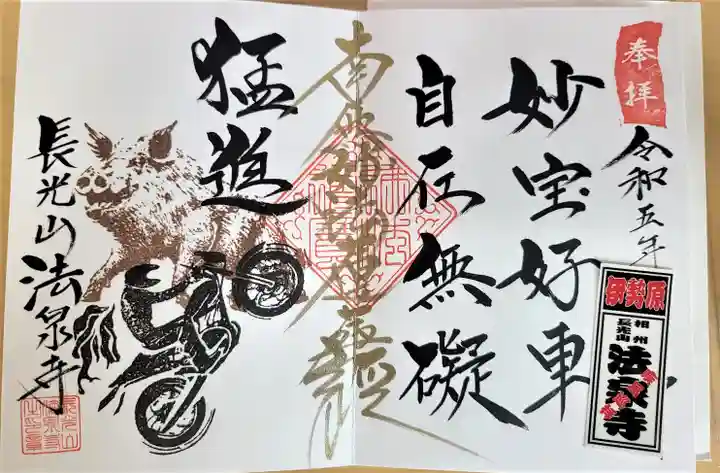 奉拝
令和五年
妙宝好車
自在無礙
南無妙法蓮華経
猛進
長光山法泉寺
伊勢原
相州
長光山
法泉寺